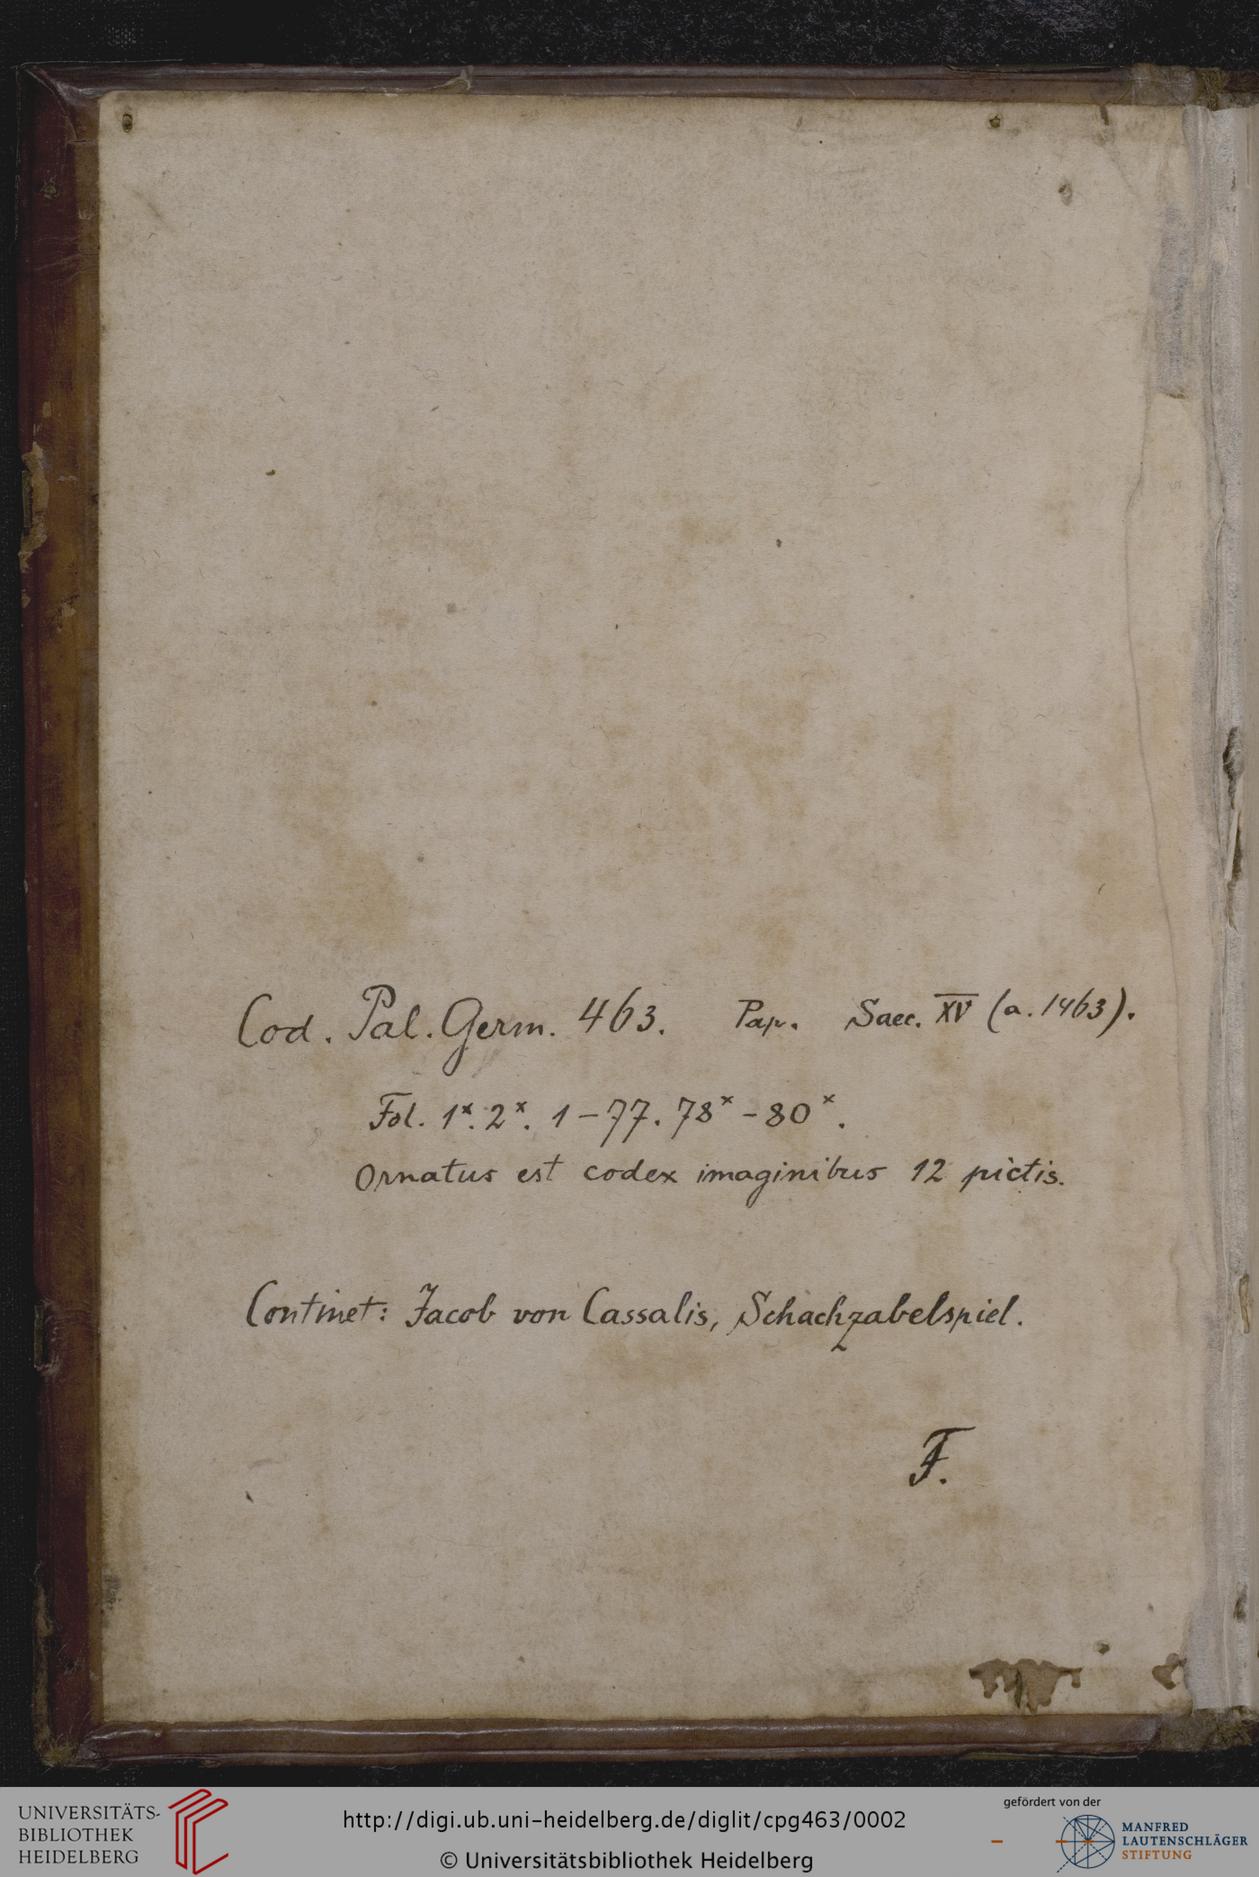 Cod. Pal. Germ. 463. Pap. Saec. XV (a. 1463).
Fol. 1ˣ. 2ˣ. 1–77. 78ˣ–80ˣ.
Ornatus est codex imaginibus 12 pictis.
Continet: Jacob von Cassalis, Schachzabelspiel.
F.
gefördert von der
UNIVERSITÄTS-
BIBLIOTHEK
HEIDELBERG
http://digi.ub.uni-heidelberg.de/diglit/cpg463/0002
© Universitätsbibliothek Heidelberg
MANFRED
LAUTENSCHLÄGER
STIFTUNG